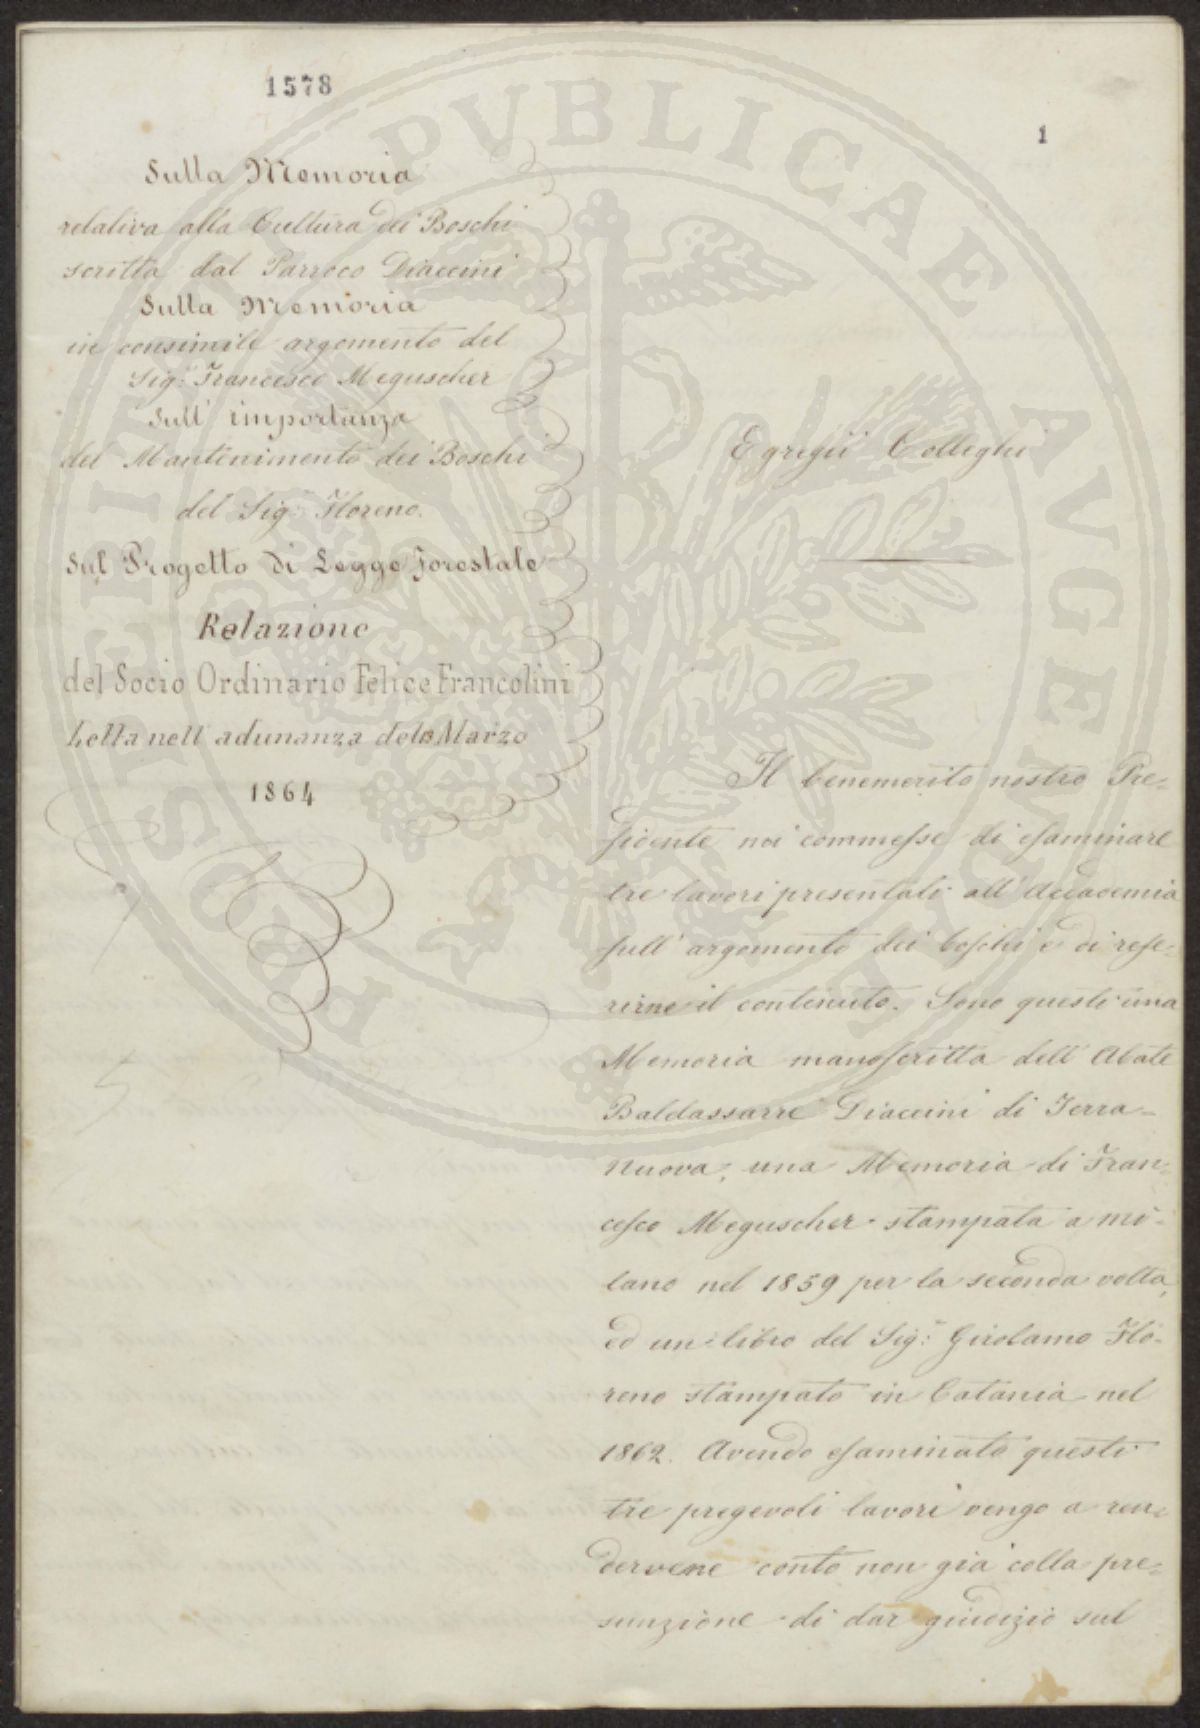 1578
1
Sulla Memoria
relativa alla Cultura dei Boschi
scritta dal Parroco Diaccini
Sulla Memoria
in consimile argomento del
Sig.r Francesco Meguscher
Sull' importanza
del Mantinimento dei Boschi
del Sig.r Floreno.
Sul Progetto di Legge Forestale
Relazione
del Socio Ordinario Felice Francolini
Letta nell' adunanza del Marzo
1864
Egregii Colleghi
Il benemerito nostro Pre-
sidente noi commesse di esaminare
tre lavori presentati all' Accademia
sull' argomento dei boschi e di refe-
rirne il contenuto. Sono questi una
Memoria manoscritta dell' Abate
Baldassarre Diaccini di Terra-
nuova, una Memoria di Fran-
cesco Meguscher stampata a Mi-
lano nel 1859 per la seconda volta,
ed un libro del Sig.r Girolamo Flo-
reno stampato in Catania nel
1862. Avendo esaminato questi
tre pregevoli lavori vengo a ren-
dervene conto non già colla pre-
sunzione di dar giudizio sul
PROSPERITATI PVBLICAE AVGENDAE